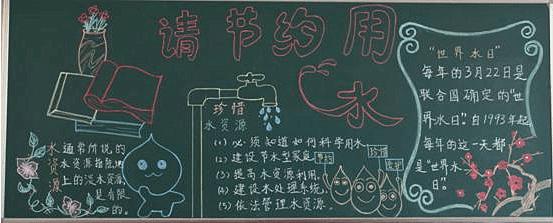 请节约用水
水资源
水通常所说的
水资源指陆地
上的淡水资源
是有限
的。
珍惜
水资源
(1) 必须知道如何科学用水
(2) 建设节水型家庭
(3) 提高水资源利用。
(4) 建设水处理系统。
(5) 依法管理水资源。
珍惜
“世界水日”
每年的3月22日是
联合国确定的“世
界水日”。自1993年起
每年的这一天都
是“世界水
日”。